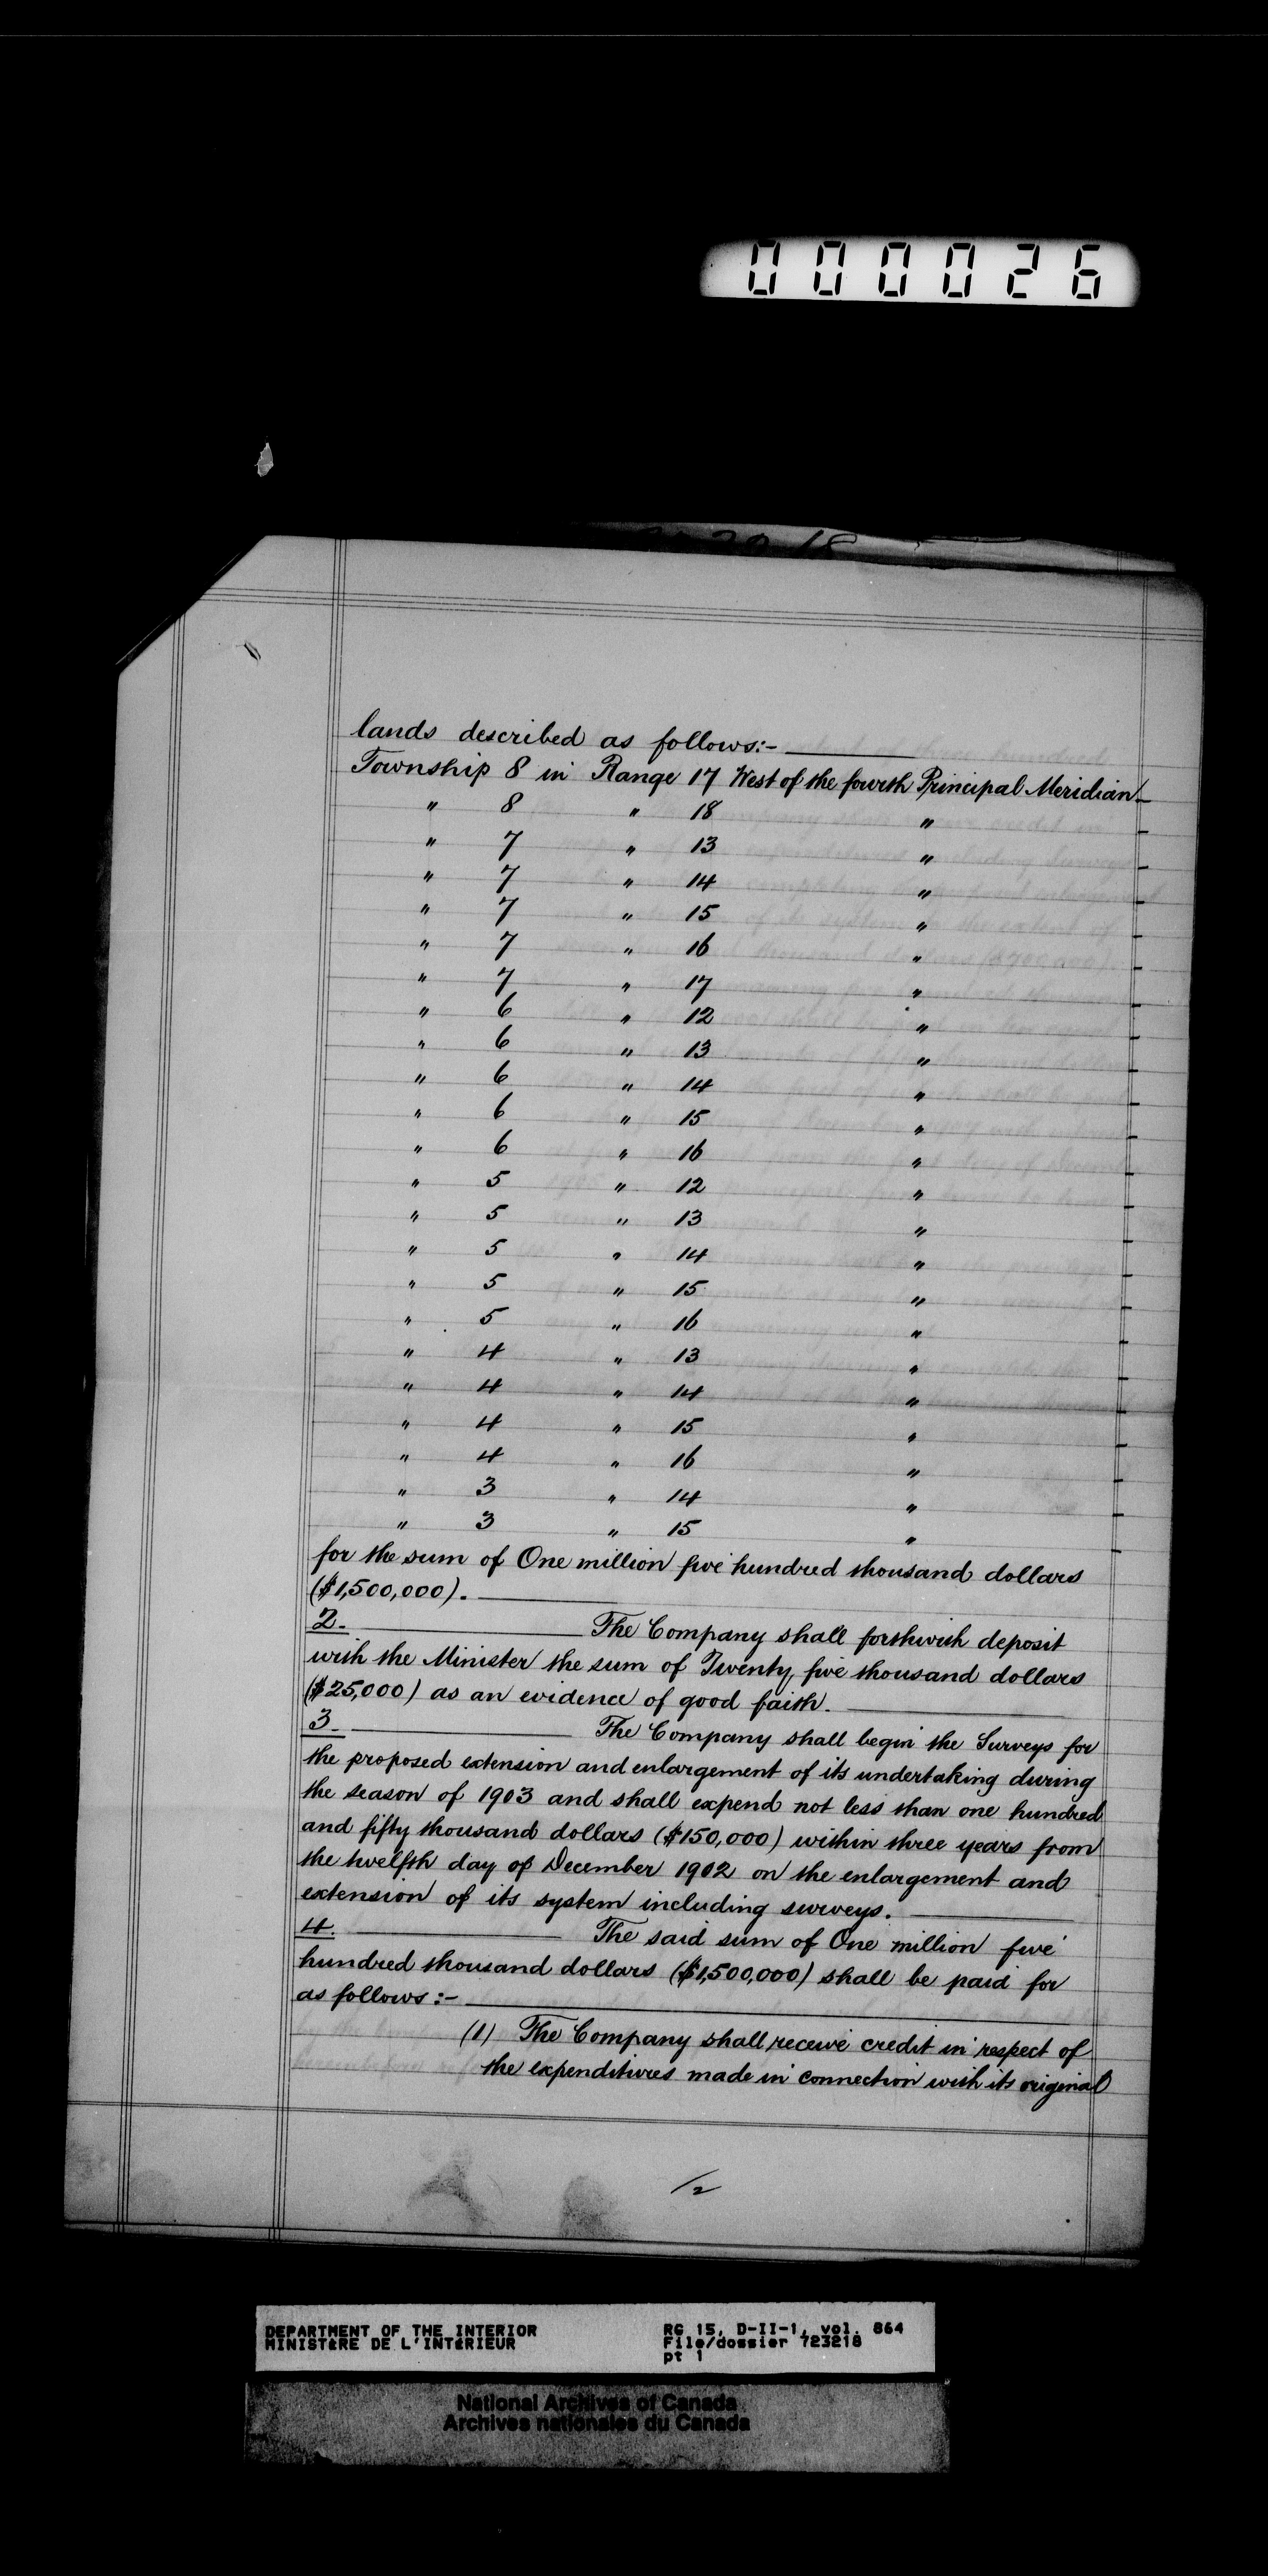 000026
lands described as follows:-
Township 8 in Range 17 West of the fourth Principal Meridian
" 8 " 18 "
" 7 " 13 "
" 7 " 14 "
" 7 " 15 "
" 7 " 16 "
" 7 " 17 "
" 6 " 12 "
" 6 " 13 "
" 6 " 14 "
" 6 " 15 "
" 6 " 16 "
" 5 " 12 "
" 5 " 13 "
" 5 " 14 "
" 5 " 15 "
" 5 " 16 "
" 4 " 13 "
" 4 " 14 "
" 4 " 15 "
" 4 " 16 "
" 3 " 14 "
" 3 " 15 "
for the sum of One million five hundred thousand dollars
($1,500,000).
2. The Company shall forthwith deposit
with the Minister the sum of Twenty five thousand dollars
($25,000) as an evidence of good faith.
3. The Company shall begin the Surveys for
the proposed extension and enlargement of its undertaking during
the season of 1903 and shall expend not less than one hundred
and fifty thousand dollars ($150,000) within three years from
the twelfth day of December 1902 on the enlargement and
extension of its system including surveys.
4. The said sum of One million five
hundred thousand dollars ($1,500,000) shall be paid for
as follows:-
(1) The Company shall receive credit in respect of
the expenditures made in connection with its original
/2
DEPARTMENT OF THE INTERIOR RG 15, D-II-1, vol. 864
MINISTÈRE DE L'INTÉRIEUR File/dossier 723218
pt 1
National Archives of Canada
Archives nationales du Canada